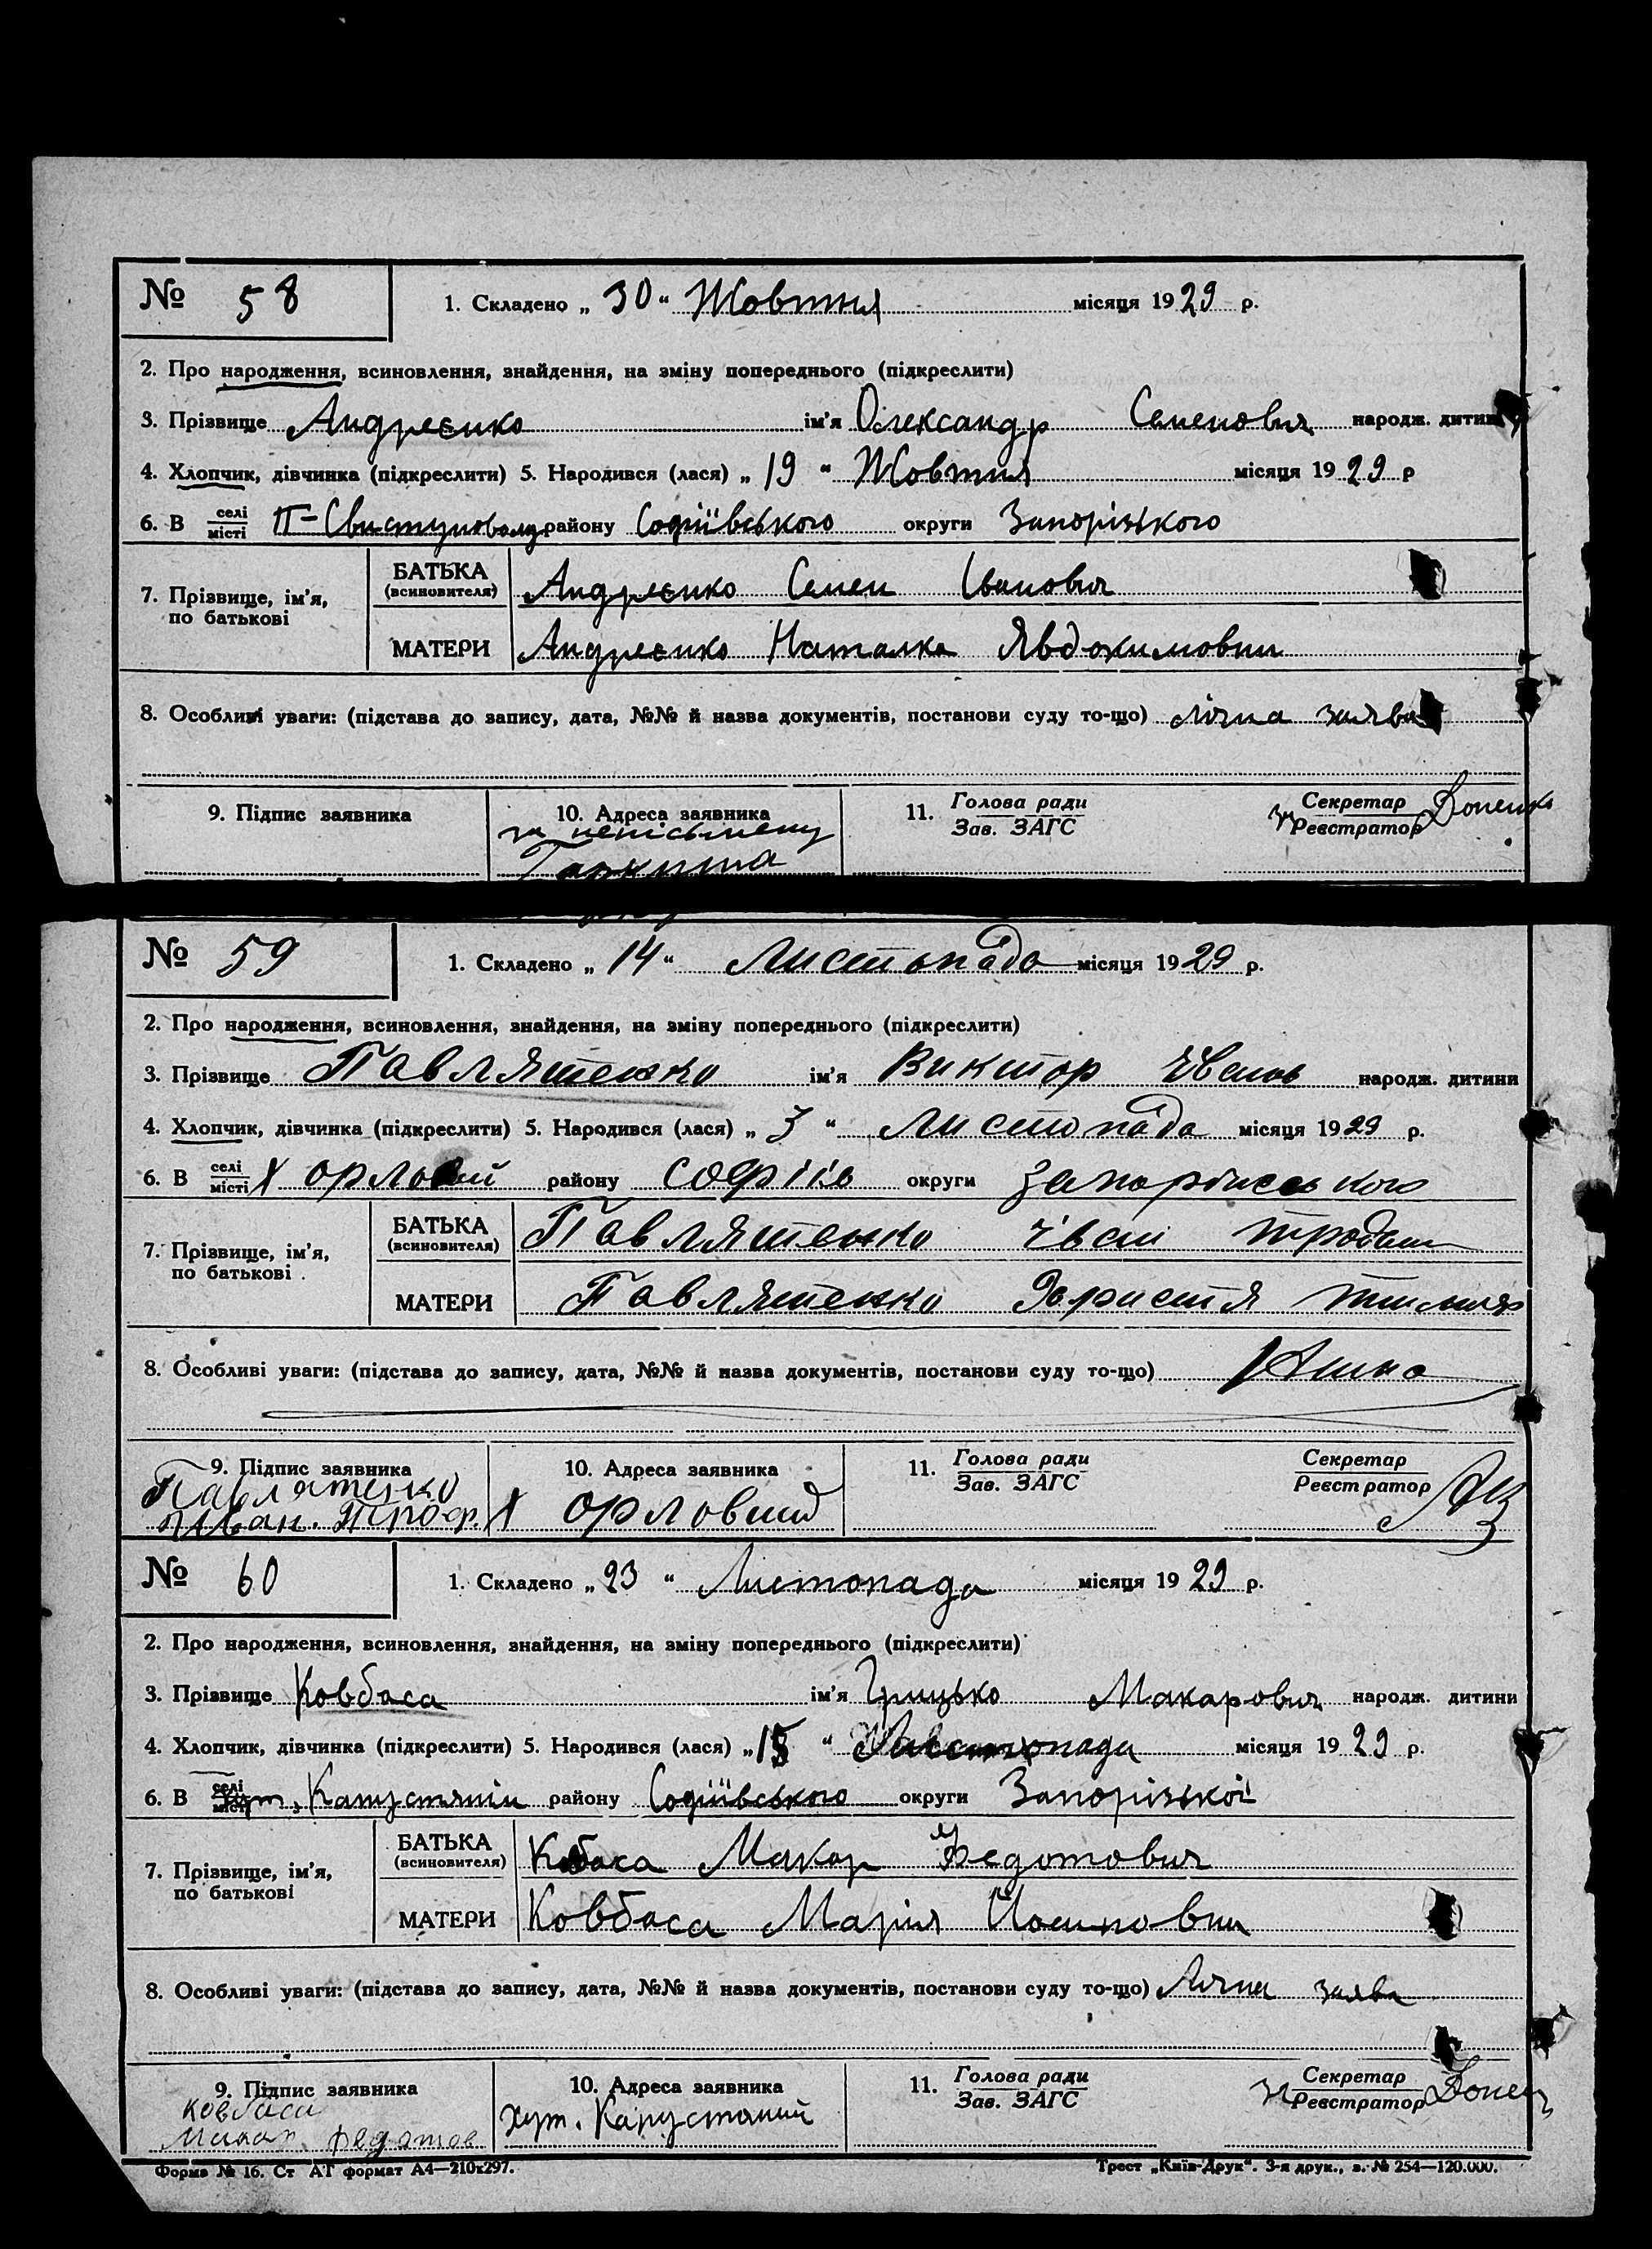 № 58 1. Складено „ 30 “ Жовтня місяця 1929 р.
2. Про народження, всиновлення, знайдення, на зміну попереднього (підкреслити)
3. Прізвище Андреєнко ім'я Олександр Семенович народж. дитини
4. Хлопчик, дівчинка (підкреслити) 5. Народився (лася) „ 19 “ Жовтня місяця 1929 р
6. В селі місті П-Свистуновому району Софіївського округи Запорізького
7. Прізвище, ім'я, по батькові
БАТЬКА (всиновителя) Андреєнко Семен Іванович
МАТЕРИ Андреєнко Наталка Явдокимовни
8. Особливі уваги: (підстава до запису, дата, №№ й назва документів, постанови суду то-що) лічна заява
9. Підпис заявника 10. Адреса заявника 11. Голова ради Зав. ЗАГС Секретар за Реєстратор
за
№ 59 1. Складено „ 14 “ Листопада місяця 1929 р.
2. Про народження, всиновлення, знайдення, на зміну попереднього (підкреслити)
3. Прізвище Павлятенко ім'я Виктор народж. дитини
4. Хлопчик, дівчинка (підкреслити) 5. Народився (лася) „ 3 “ Листопада місяця 1929 р.
6. В селі місті х району Софіїв округи
7. Прізвище, ім'я, по батькові
БАТЬКА (всиновителя) Павлятенко
МАТЕРИ Павлятенко
8. Особливі уваги: (підстава до запису, дата, №№ й назва документів, постанови суду то-що)
9. Підпис заявника 10. Адреса заявника 11. Голова ради Зав. ЗАГС Секретар Реєстратор
Павлятенко
Іван. Проф. х
№ 60 1. Складено „ 23 “ Листопада місяця 1929 р.
2. Про народження, всиновлення, знайдення, на зміну попереднього (підкреслити)
3. Прізвище Ковбаса ім'я Грицько Макарович народж. дитини
4. Хлопчик, дівчинка (підкреслити) 5. Народився (лася) „ 15 “ Листопада місяця 1929 р.
6. В селі місті хут. Капустяній району Софіївського округи Запорізької
7. Прізвище, ім'я, по батькові
БАТЬКА (всиновителя) Ковбаса Макар Федотович
МАТЕРИ Ковбаса Марія Йосиповни
8. Особливі уваги: (підстава до запису, дата, №№ й назва документів, постанови суду то-що) Лічна заява
9. Підпис заявника 10. Адреса заявника 11. Голова ради Зав. ЗАГС Секретар за Реєстратор
Ковбаса
Макар Федотов хут. Капустяний
Форма № 16. Ст АГ формат А4—210x297. Трест „Київ-Друк“. 3-я друк., з. № 254—120.000.